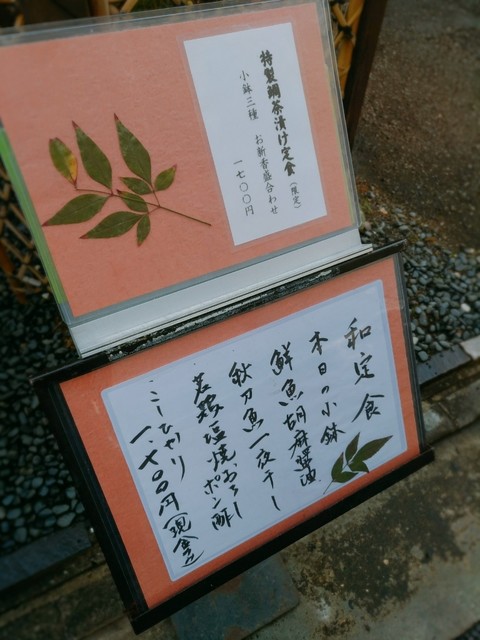 特製鯛茶漬け定食(限定)
小鉢三種 お新香盛合わせ
一七〇〇円
和定食
本日の小鉢
鮮魚胡麻醤油
秋刀魚一夜干し
若鶏塩焼おろしポン酢
こーひ付
一、七〇〇円(現金